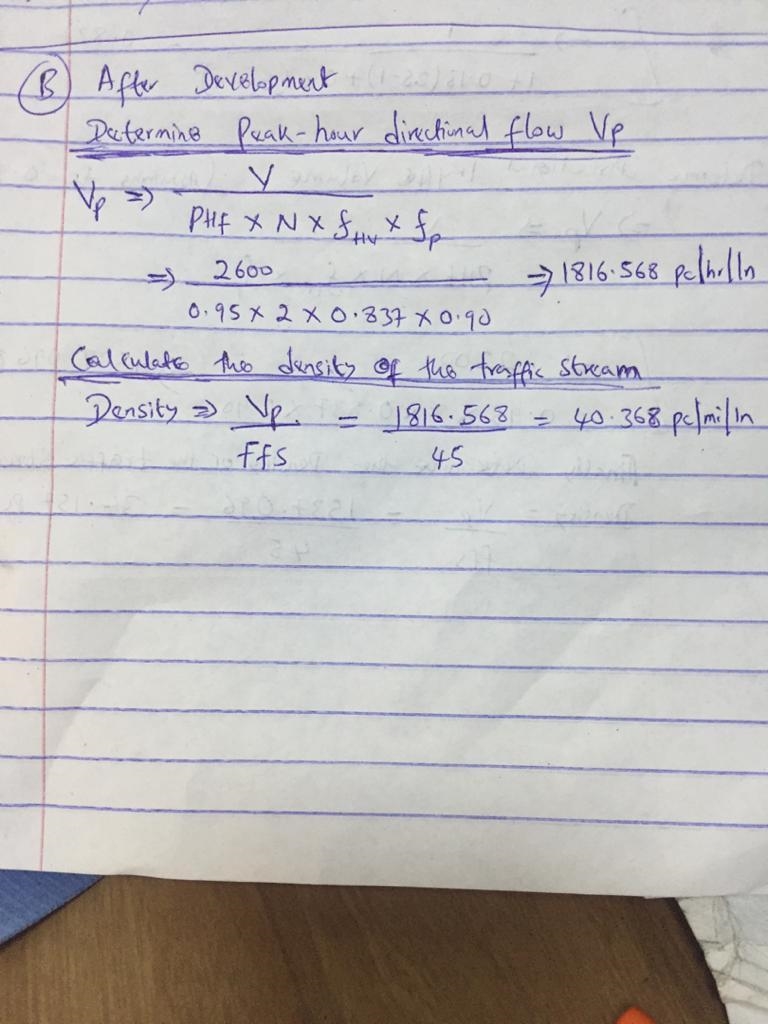 B After Development
Determine Peak-hour directional flow Vp
Vp ⇒ V
PHf × N × fHV × fp
⇒ 2600 ⇒ 1816.568 pc/hr/ln
0.95 × 2 × 0.837 × 0.90
Calculate the density of the traffic stream
Density ⇒ Vp. = 1816.568 = 40.368 pc/mi/ln
ffS 45